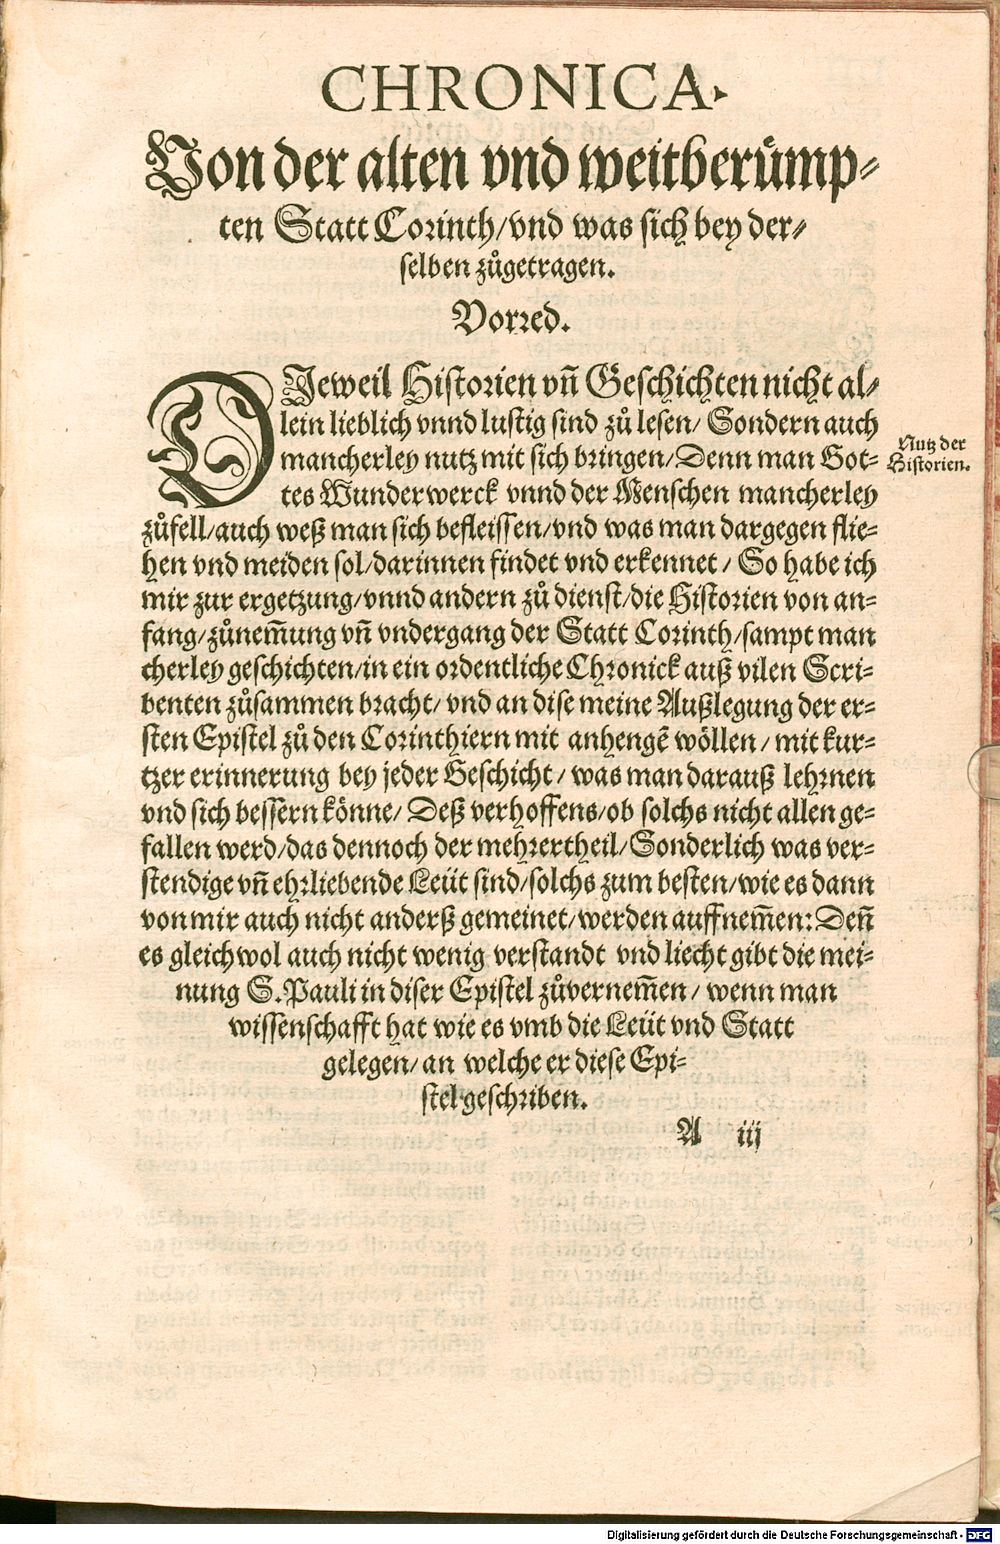 CHRONICA.
Von der alten vnd weitberümp-
ten Statt Corinth/vnd was sich bey der-
selben zůgetragen.
Vorred.
DJeweil Historien vñ Geschichten nicht al-
lein lieblich vnnd lustig sind zů lesen/ Sondern auch
mancherley nutz mit sich bringen/Denn man Got-
tes Wunderwerck vnnd der Menschen mancherley
zůfell/auch weß man sich befleissen/vnd was man dargegen flie-
hen vnd meiden sol/darinnen findet vnd erkennet/ So habe ich
mir zur ergetzung/vnnd andern zů dienst/die Historien von an-
fang/zůnem̃ung vñ vndergang der Statt Corinth/sampt man
cherley geschichten/in ein ordentliche Chronick auß vilen Scri-
benten zůsammen bracht/ vnd an dise meine Außlegung der er-
sten Epistel zů den Corinthiern mit anhengẽ wöllen/ mit kur-
tzer erinnerung bey jeder Geschicht/ was man darauß lehrnen
vnd sich bessern könne/ Deß verhoffens/ob solchs nicht allen ge-
fallen werd/das dennoch der mehrertheil/Sonderlich was ver-
stendige vñ ehrliebende Leüt sind/solchs zum besten/wie es dann
von mir auch nicht anderß gemeinet/werden auffnem̃en: Deñ
es gleichwol auch nicht wenig verstandt vnd liecht gibt die mei-
nung S. Pauli in diser Epistel zůvernem̃en/ wenn man
wissenschafft hat wie es vmb die Leüt vnd Statt
gelegen/ an welche er diese Epi-
stel geschriben.
A iij
Nutz der
Historien.
Digitalisierung gefördert durch die Deutsche Forschungsgemeinschaft - DFG